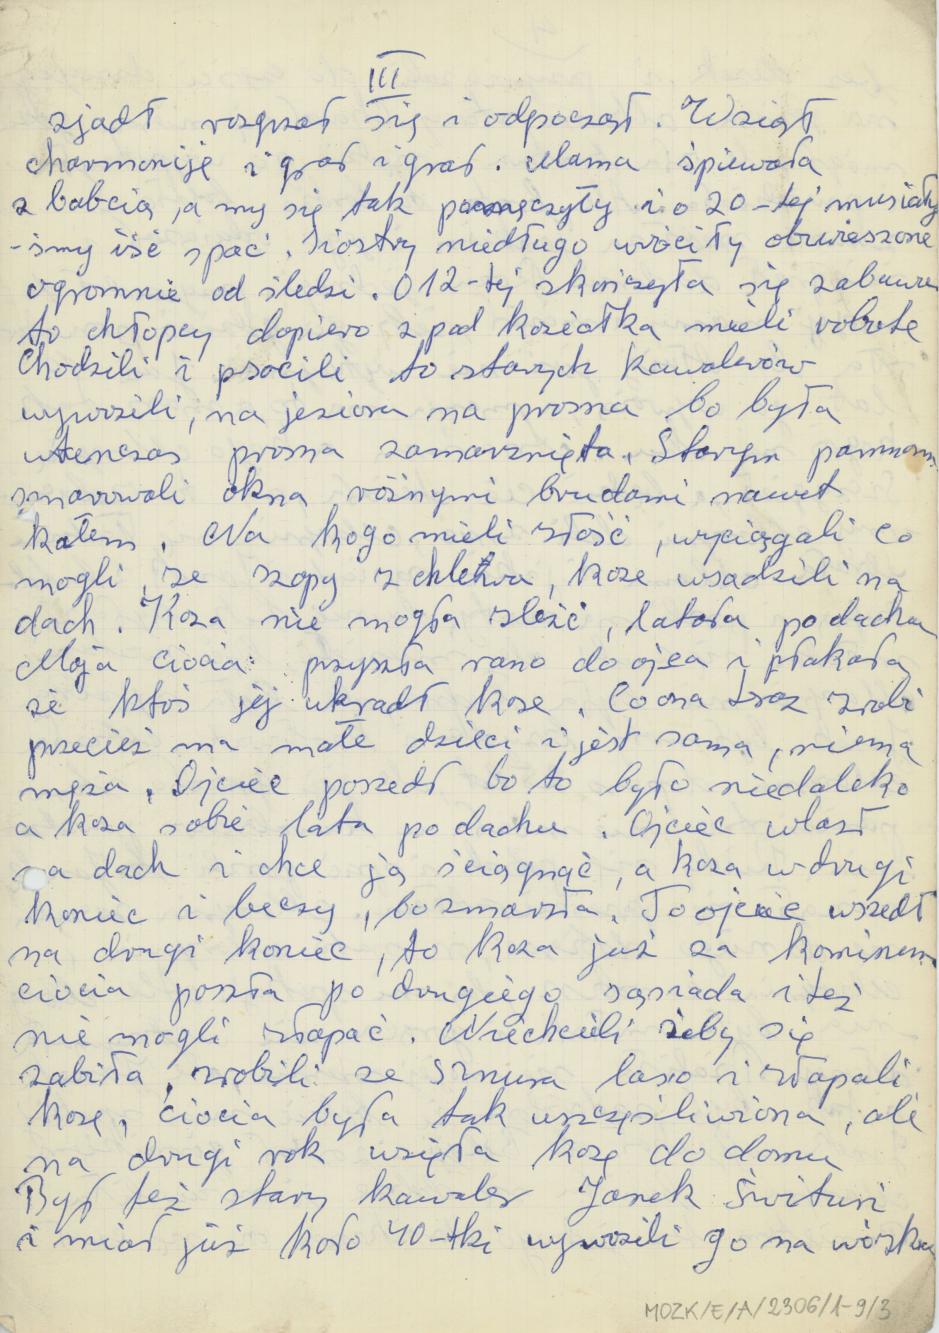 III
zjadł rozgrzał się i odpoczął. Wziął
charmoniję i grał i grał. Mama śpiewała
z babcią, a my się tak pomęczyły i o 20-tej musiały
-śmy iść spać. Siostry niedługo wróciły obwieszone
ogromnie od śledzi. O 12-tej skończyła się zabawa
to chłopcy dopiero z pod koziołka mieli robote
Chodzili i psocili to starych kawalerów
wywozili, na jeziora na prosna bo była
wtenczas prosna zamarznięta. Starym pannom
smarowali okna różnymi brudami nawet
kałem. Na kogo mieli złość, wyciągali co
mogli, ze szopy z chlewa, koze wsadzili na
dach. Koza nie mogła zleźć, latała po dachu
Moja ciocia: przyszła rano do ojca i płakała
że ktoś jej ukradł koze. Co ona teraz zrobi
przecież ma małe dzieci i jest sama, niema
męża. Ojciec poszedł bo to było niedaleko
a koza sobie lata po dachu. Ojciec wlazł
na dach i chce ją ściągnąć, a koza w drugi
koniec i beczy, bo zmarzła. To ojciec wszedł
na drugi koniec, to koza już za kominem
ciocia poszła po drugiego sąsiada i też
nie mogli złapać. Niechcieli żeby się
zabiła, zrobili ze sznura laso i złapali
kozę, ciocia była tak uszczęśliwiona, ale
na drugi rok wzięła kozę do domu
Był też stary kawaler Janek Świtusi
i miał już koło 40-tki wywozili go na wózku
MOZK/E/A/2306/1-9/3